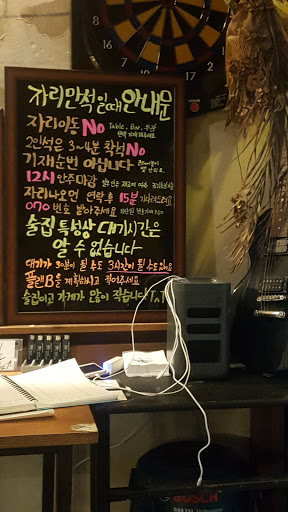 자리만석일때 안내문
자리이동 No Table, Bar, 무관
2인석은 3~4분 착석 No
기재순번 아닙니다
12시 안주마감
자리나오면 연락 후 15분 기다려드려요
070 번호 받아주세요
술집 특성상 대기시간은
알 수 없습니다
대기가 30분이 될 수도 3시간이 될 수도 있어요
플랜B을 계획하시고 적어주세요
술집이고 가게가 많이 작습니다 T.T
BOSCH